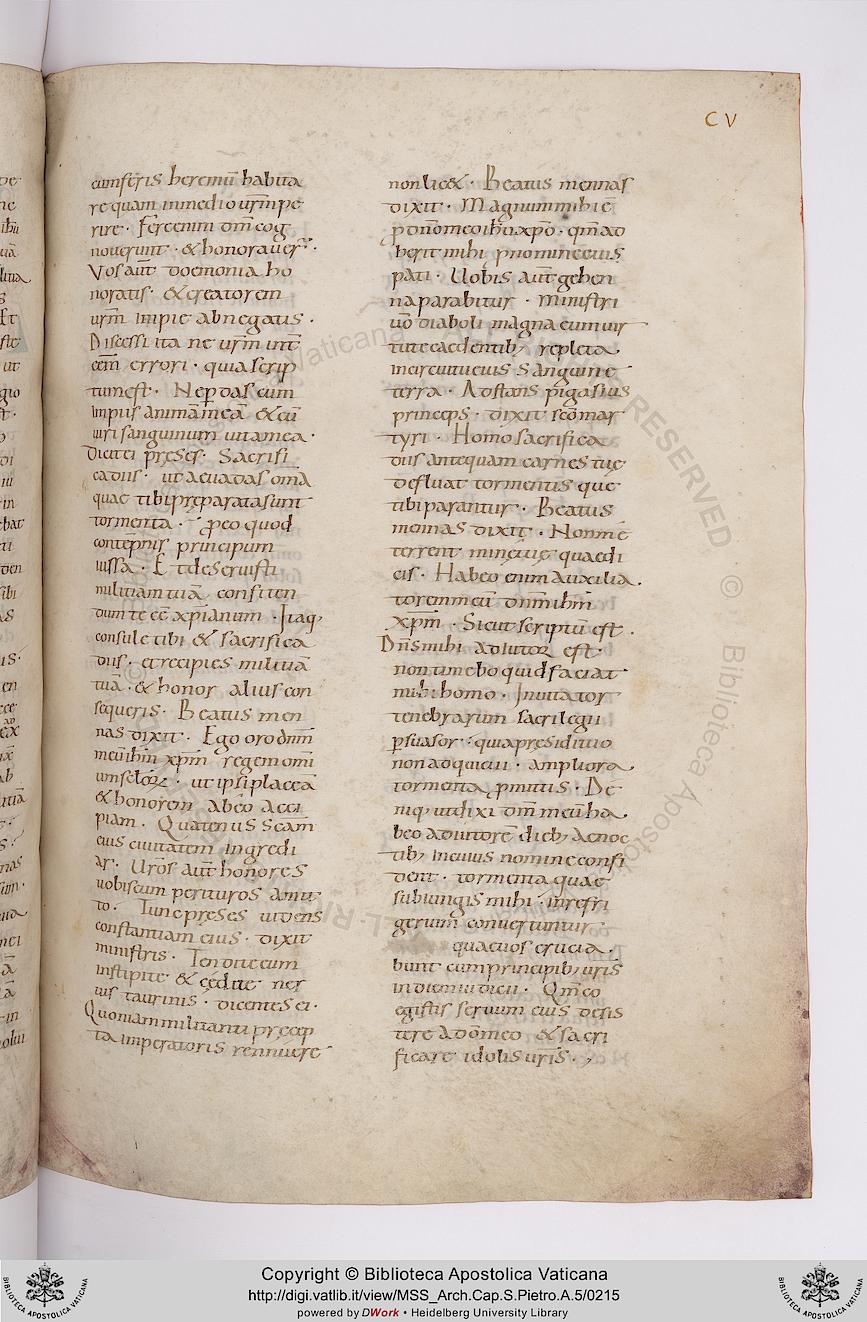 CV
cumferis heremū habita
re quam inmedio ur̄m pe
rire · Fere enim om̄ cog
noverunt · & honoraver
Vos aut̄ doemonia ho
noratis · & creatorem
urm̄ impie abnegatis ·
Discessi ita ne ur̄m int̄
eēm errori · quia scrip
tum est · Ne p̄das cum
impiis animā meā & cū
uiri sanguinum uitā mea ·
Dicit ei preses · Sacrifi
ca diis · ut aeuadas om̄a
quae tibi preparata sunt
tormenta · p̄ eo quod
contēpnis principum
iussa · Et deseruisti
militiam tuā consiten
dum te eē xp̄ianum · Itaq;
consule tibi & sacrifica
diis · et recipies militiā
tuā · & honor alius con
sequeris · Beatus men
nas dixit · Ego oro dn̄m
meū ihm̄ xp̄m regem om̄i
um · ut ipsi placeā
& honorem ab eo acci
piam · Quatenus sc̄am
eius ciuitatem ingredi
ar · Uros aut̄ honores
uobiscum perituros amit
to · Tunc preses uidens
constantiam eius · dixit
ministris · Tendite eum
in stipite & cędite ner
uis taurinis · dicentes ei ·
Quoniam militanti precep
ta imperatoris rennuere
non lic& · Beatus mennas
dixit · Magnum mihi ē
p̄ dn̄o meo ihū xp̄o · qm̄ ad
herit mihi p̄ nomine eius
pati · Uobis aut̄ gehen
na parabitur · Ministri
uō diaboli magna cum uir
tute caedentib; repleta
in circuitu eius sanguine
terra · Adstans pigasius
princeps · dixit sc̄o mar
tyri · Homo sacrifica
diis antequam carnes tuę
defluat tormentis que
tibi parantur · Beatus
mennas dixit · Non me
terrent minę tuę quae di
cis · Habeo enim auxilia
torem meū dn̄m ihm̄
xp̄m · Sicut scriptū est ·
Dn̄s mihi adiutor est ·
non timebo quid faciat
mihi homo · Inuitator
tenebrarum sacrilegii
p̄suasor · quia presiditio
non adquieui · ampliora
tormenta p̄mittis · De
niq; ut dixi om̄ meū ha
beo adiutorē dieb; ac noc
tib; in cuius nomine confi
dent · tormenta quae
subiungis mihi · in refri
gerium conuertuntur
quae uos crucia
bunt cum principib; uris̄
in die iudicii · Qm̄ co
egistis seruum eius desis
tere a dō meo & sacri
ficare idolis uris̄ ·
Copyright © Biblioteca Apostolica Vaticana
http://digi.vatlib.it/view/MSS_Arch.Cap.S.Pietro.A.5/0215
powered by DWork • Heidelberg University Library